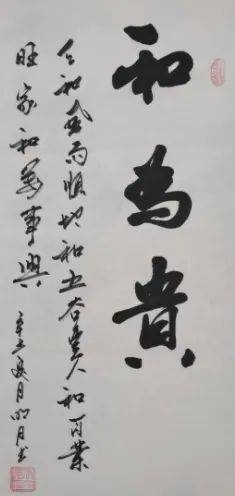 和為貴
天和風雨順地和五谷豐人和百業
旺家和萬事興
辛丑夏月明月书